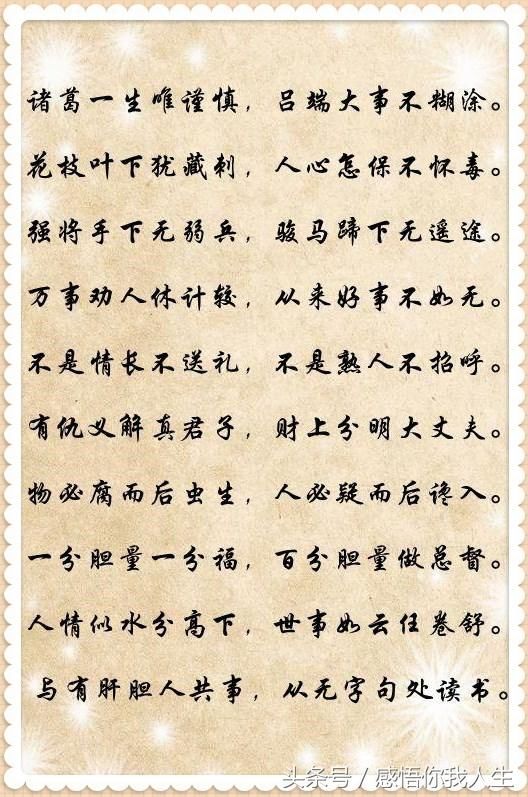 诸葛一生唯谨慎，吕端大事不糊涂。
花枝叶下犹藏刺，人心怎保不怀毒。
强将手下无弱兵，骏马蹄下无遥途。
万事劝人休计较，从来好事不如无。
不是情长不送礼，不是熟人不招呼。
有仇义解真君子，财上分明大丈夫。
物必腐而后虫生，人必疑而后谗入。
一分胆量一分福，百分胆量做总督。
人情似水分高下，世事如云任卷舒。
与有肝胆人共事，从无字句处读书。
头条号／感悟你我人生